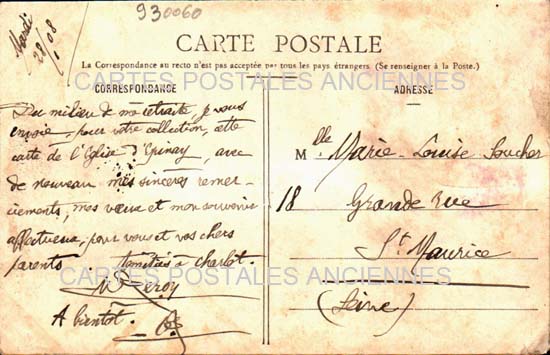 930060
Mardi
28/1 08
CARTE POSTALE
La Correspondance au recto n'est pas acceptée par tous les pays étrangers. (Se renseigner à la Poste.)
CARTES POSTALES ANCIENNES
CORRESPONDANCE
ADRESSE
Du milieu de ma retraite, je vous
envoie, pour votre collection, cette
carte de l'Eglise d'Epinay, avec
de nouveau mes sincères remer-
ciements, mes vœux et mon souvenir
affectueux, pour vous et vos chers
parents. Amitiés à Charlot.
Leroy
A bientôt.
Mlle Marie-Louise Soucher
18 Grande rue
St Maurice
(Seine)
CARTES POSTALES ANCIENNES